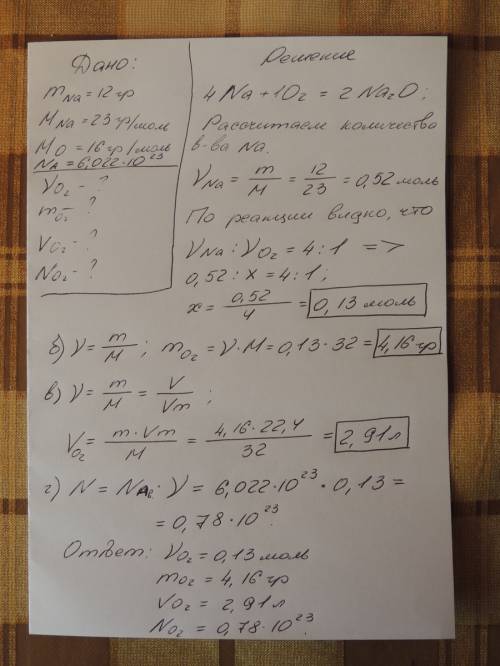 Дано:
m Na = 12 гр
M Na = 23 гр/моль
M O = 16 гр/моль
N A = 6,022·10²³
ν O₂ - ?
m O₂ - ?
V O₂ - ?
N O₂ - ?
Решение
4Na + 1O₂ = 2Na₂O;
Рассчитаем количества
в-ва Na.
ν Na = m/M = 12/23 = 0,52 моль
По реакции видно, что
ν Na : ν O₂ = 4:1 =>
0,52 : x = 4:1;
x = 0,52/4 = 0,13 моль
б) ν = m/M; m O₂ = ν·M = 0,13·32 = 4,16 гр
в) ν = m/M = V/Vm;
V O₂ = m·Vm/M = 4,16·22,4/32 = 2,91 л
г) N = N Aв·ν = 6,022·10²³·0,13 =
= 0,78·10²³.
Ответ: ν O₂ = 0,13 моль
m O₂ = 4,16 гр
V O₂ = 2,91 л
N O₂ = 0,78·10²³.